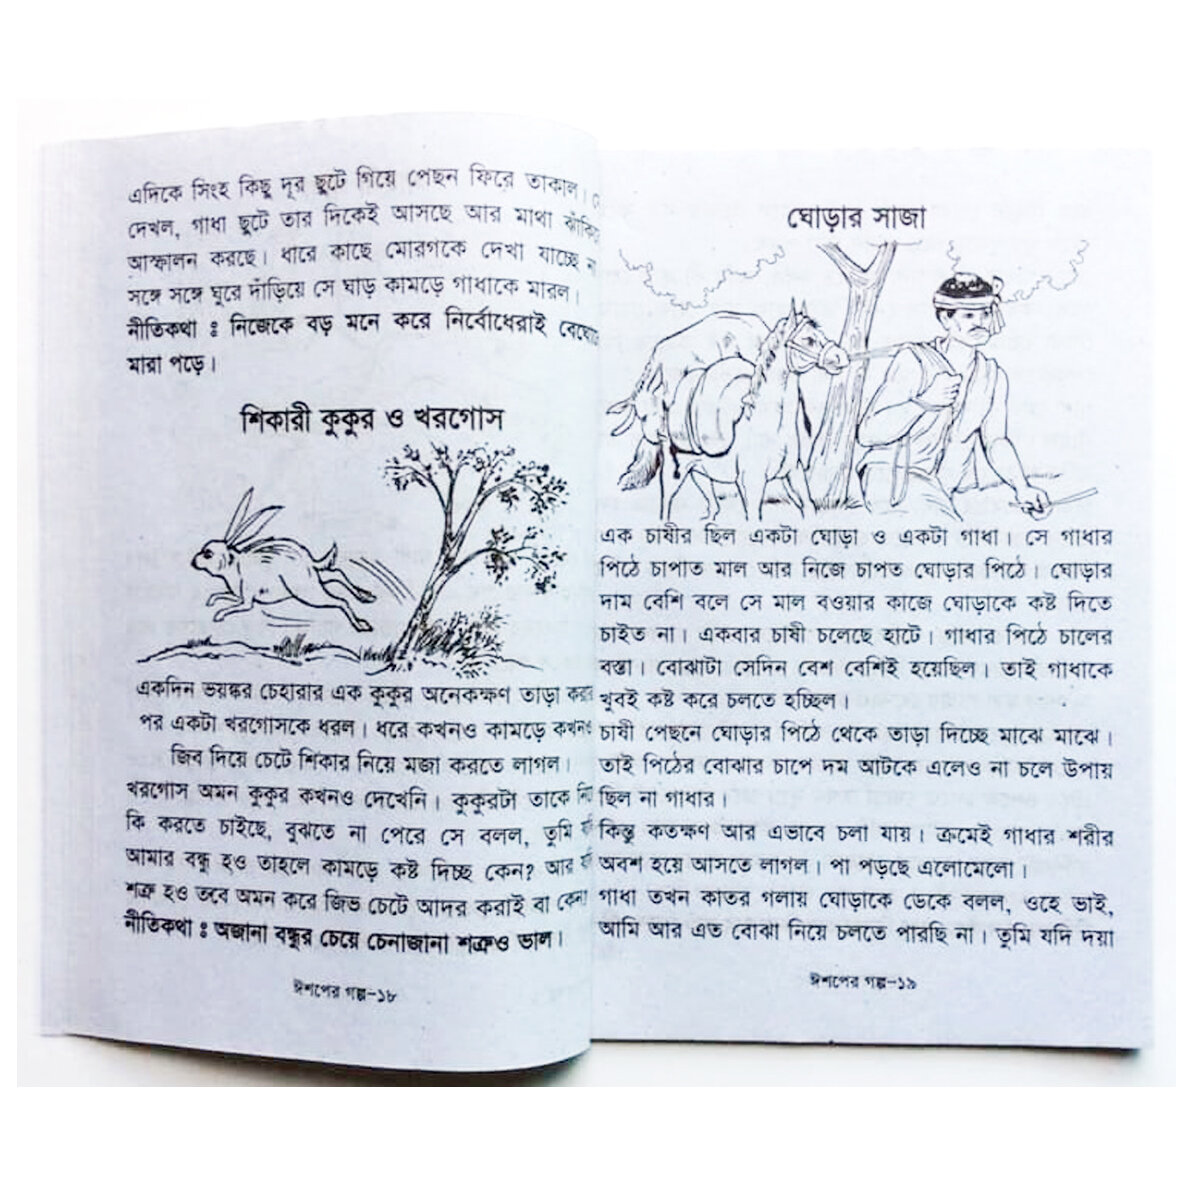 এদিকে সিংহ কিছু দূর ছুটে গিয়ে পেছন ফিরে তাকাল।
দেখল, গাধা ছুটে তার দিকেই আসছে আর মাথা
আস্ফালন করছে। ধারে কাছে মোরগকে দেখা যাচ্ছে
সঙ্গে সঙ্গে ঘুরে দাঁড়িয়ে সে ঘাড় কামড়ে গাধাকে মারল।
নীতিকথা ঃ নিজেকে বড় মনে করে নির্বোধেরাই
মারা পড়ে।
শিকারী কুকুর ও খরগোস
একদিন ভয়ঙ্কর চেহারার এক কুকুর অনেকক্ষণ তাড়া করার
পর একটা খরগোসকে ধরল। ধরে কখনও কামড়ে কখনও
জিব দিয়ে চেটে শিকার নিয়ে মজা করতে লাগল।
খরগোস অমন কুকুর কখনও দেখেনি। কুকুরটা তাকে
কি করতে চাইছে, বুঝতে না পেরে সে বলল, তুমি
আমার বন্ধু হও তাহলে কামড়ে কষ্ট দিচ্ছ কেন? আর
শত্রু হও তবে অমন করে জিভ চেটে আদর করাই বা কেন?
নীতিকথা ঃ অজানা বন্ধুর চেয়ে চেনাজানা শত্রুও ভাল।
ঈশপের গল্প-১৮
ঘোড়ার সাজা
এক চাষীর ছিল একটা ঘোড়া ও একটা গাধা। সে গাধার
পিঠে চাপাত মাল আর নিজে চাপত ঘোড়ার পিঠে। ঘোড়ার
দাম বেশি বলে সে মাল বওয়ার কাজে ঘোড়াকে কষ্ট দিতে
চাইত না। একবার চাষী চলেছে হাটে। গাধার পিঠে চালের
বস্তা। বোঝাটা সেদিন বেশ বেশিই হয়েছিল। তাই গাধাকে
খুবই কষ্ট করে চলতে হচ্ছিল।
চাষী পেছনে ঘোড়ার পিঠে থেকে তাড়া দিচ্ছে মাঝে মাঝে।
তাই পিঠের বোঝার চাপে দম আটকে এলেও না চলে উপায়
ছিল না গাধার।
কিন্তু কতক্ষণ আর এভাবে চলা যায়। ক্রমেই গাধার শরীর
অবশ হয়ে আসতে লাগল। পা পড়ছে এলোমেলো।
গাধা তখন কাতর গলায় ঘোড়াকে ডেকে বলল, ওহে ভাই,
আমি আর এত বোঝা নিয়ে চলতে পারছি না। তুমি যদি দয়া
ঈশপের গল্প-১৯